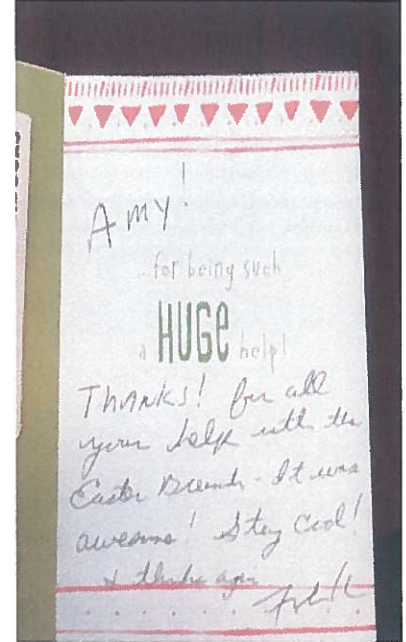 Amy!
...for being such
a HUGE help!
THANKS! for all
your help with the
Easter Brunch - It was
awesome! Stay Cool!
& thanks again